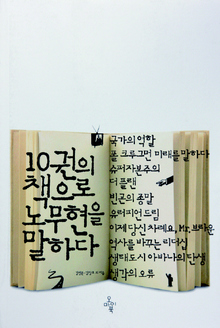 10권의
책으로
노무현을
말하다
국가의 역할
폴 크루그먼 미래를 말하다
슈퍼자본주의
더 플랜
빈곤의 종말
유러피언 드림
이제 당신 차례요, Mr. 브라운
역사를 바꾸는 리더십
생태도시 아바나의 탄생
생각의 오류
오마이북